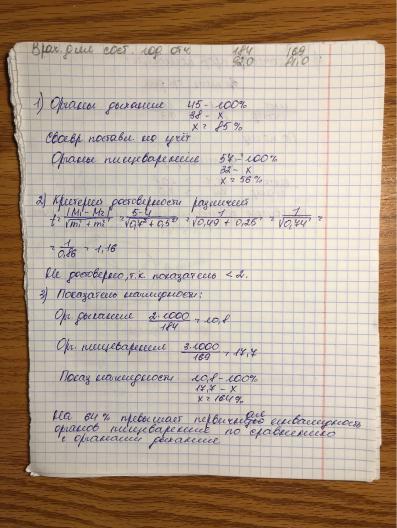 Врач. д-мо сост. год отч. 184 169
92,0 41,0
1) Органы дыхание 45 - 100%
38 - x
x = 85%
Своевр постави. на учёт
Органы пищеварение 57 - 100%
32 - x
x = 56%
2) Критерий достоверности различает
t = |M1 - M2| / √m1² + m2² = 5-4 / √0,7² + 0,5² = 1 / √0,49 + 0,25 = 1 / √0,74 =
= 1 / 0,86 = 1,16
Не достоверно, т.к. показатель < 2.
3) Показатель наглядности:
Ор. дыхание 2·1000 / 184 = 10,8
Ор. пищеварение 3·1000 / 169 = 17,7
Показ наглядности 10,8 - 100%
17,7 - x
x = 164%
На 64% превышает первичную инвалидность
органов пищеварение по сравнению
с органами дыхание